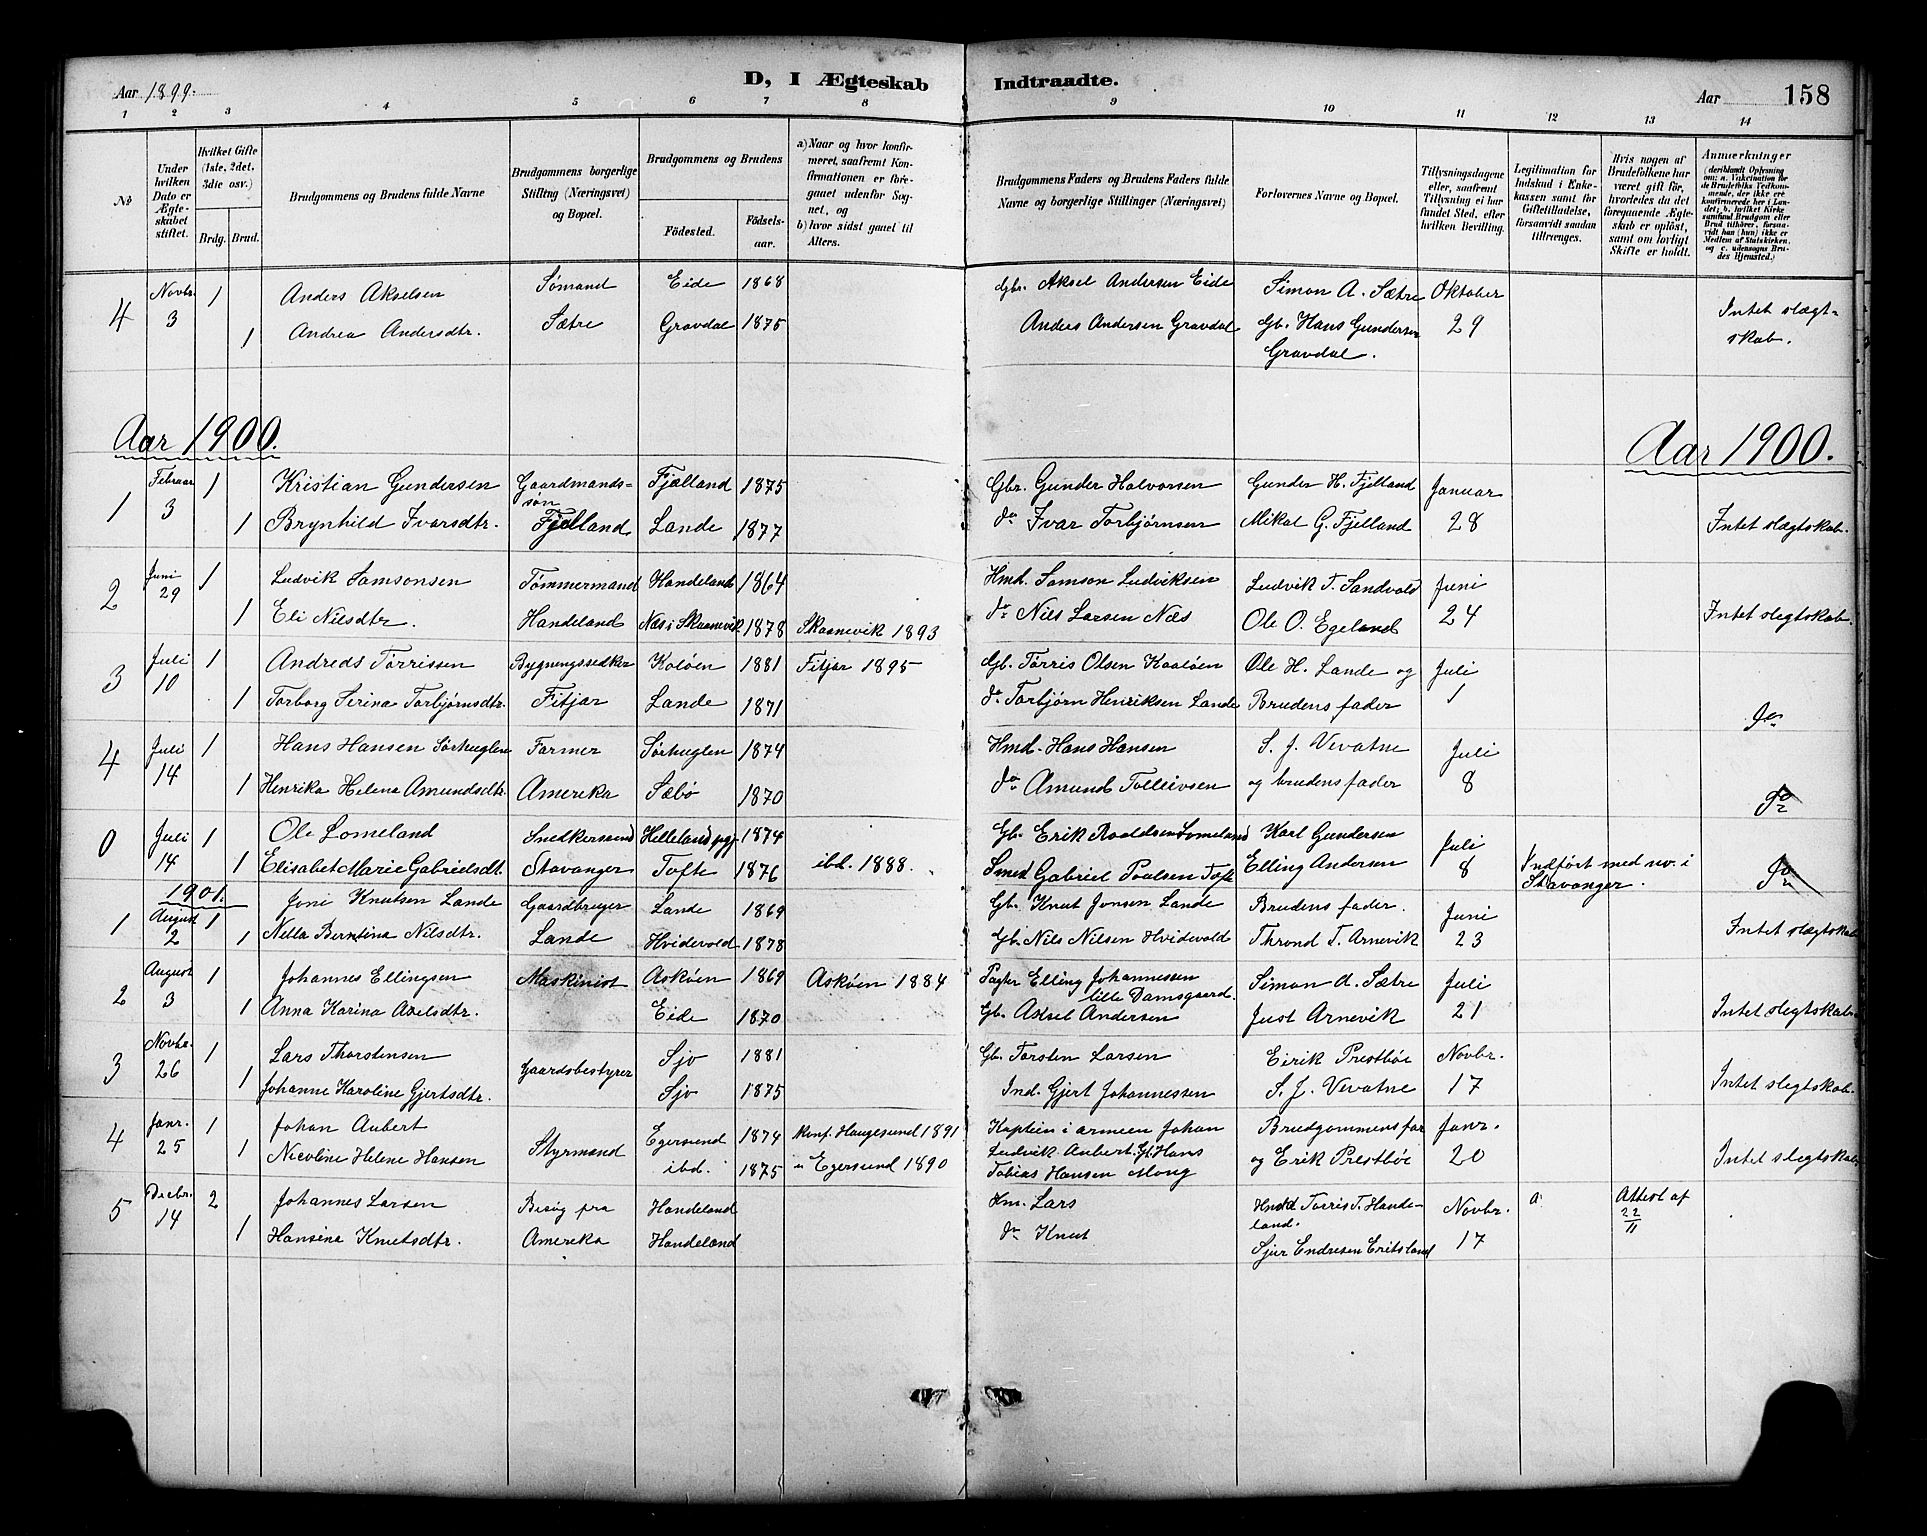 Aar 1899. D, I Ægteskab Indtraadte. Aar 158
1 2 3 4 5 6 7 8 9 10 11 12 13 14
No
Under hvilken Dato er Ægteskabet stiftet.
Hvilket Gifte (1ste, 2det, 3die osv.)
Brdg. Brud.
Brudgommens og Brudens fulde Navne
Brudgommens borgerlige Stilling (Næringsvei) og Bopæl.
Brudgommens og Brudens
Fødested. Fødselsaar.
a) Naar og hvor konfirmeret, saafremt Konfirmationen er foregaaet udenfor Sognet, og
b) hvor sidst gaaet til Alters.
Brudgommens Faders og Brudens Faders fulde Navne og borgerlige Stillinger (Næringsvei)
Forlovernes Navne og Bopæl.
Tillysningsdagene eller, saafremt Tillysning ei har fundet Sted, efter hvilken Bevilling.
Legitimation for Indskud i Enkekassen samt for Giftetilladelse, forsaavidt saadan tiltrænges.
Hvis nogen af Brudefolkene har været gift før, hvorledes da det foregaaende Ægteskab er opløst, samt om lovligt Skifte er holdt.
Anmærkninger (deriblandt Oplysning om: a. Vakcination for de Brudefolks Vedkommende, der ikke ere konfirmerede her i Landet; b. hvilket Kirkesamfund Brudgom eller Brud tilhører, forsaavidt han (hun) ikke er Medlem af Statskirken, og c. udensogns Brudes Hjemsted.)
4 Novbr. 3 1 Anders Akselsen Sømand Eide 1868 Gbr. Aksel Andersen Eide Simon A. Sætre Oktober 29 Intet slægtskab.
1 Andrea Andersdtr. Sætre Gravdal 1875 Anders Andersen Gravdal Gb. Hans Gundersen Gravdal.
Aar 1900. Aar 1900.
1 Februar 3 1 Kristian Gundersen Gaardmandssøn Fjælland 1875 Gbr. Gunder Halvorsen Gunder H. Fjelland Januar 28 Intet slægtskab.
1 Brynhild Ivarsdtr. Fjelland Lande 1877 do Ivar Torbjørnsen Mikal G. Fjelland
2 Juni 29 1 Ludvik Samsonsen Tømmermand Handeland 1864 Hmd. Samson Ludviksen Ludvik T. Sandvold Juni 24 Intet slegtskab.
1 Eli Nilsdtr. Handeland Næs i Skaanevik 1878 Skaanevik 1893 do Nils Larsen Næs Ole O. Egeland
3 Juli 10 1 Andreds Tørrissen Bygningssedker Koløen 1881 Fitjar 1895 Gb. Tørris Olsen Kaaløen Ole H. Lande og Juli 1 do
1 Torborg Serina Torbjørnsdtr. Fitjar Lande 1871 do Torbjørn Henriksen Lande Brudens fader
4 Juli 14 1 Hans Hansen Sørhuglen Farmer Sørhuglen 1874 Hmd. Hans Hansen S. J. Vevatne Juli 8 do
1 Henrika Helena Amundsdtr. Amerika Sæbø 1870 do Amund Tolleivsen og brudens fader
0 Juli 14 1 Ole Lomeland Snedkersvend Helleland pgj 1874 Gb. Erik Roaldsen Lomeland Karl Gundersen Juli 8 Indført med nv. i Stavanger. do
1 Elisabet Marie Gabrielsdt. Stavanger Tofte 1876 ibd. 1888. Smed Gabriel Poulsen Tofte Elling Andersen
1901.
1 August 2 1 Joni Knutsen Lande Gaardbruger Lande 1869 Gb. Knut Jonsen Lande Brudens fader. Juni 23 Intet slægtskab
1 Nella Berntina Nilsdtr. Lande Hvidevold 1878 Gb. Nils Nilsen Hvidevold Thrond T. Arnevik
2 August 3 1 Johannes Ellingsen Maskinist Askøen 1869 Askøen 1884 Pagter Elling Johannessen lille Damsgaard. Simon A. Sætre Juli 21 Intet slegtskab.
1 Anna Karina Axelsdtr. Eide 1870 Gb. Aksel Andersen Just Arnevik
3 Novbr. 26 1 Lars Thorstensen Gaardsbestyrer Sjo 1881 Gb. Torsten Larsen Eirik Prestbøe Novbr. 17 Intet slegtskab.
1 Johanne Karoline Gjertsdtr. Sjo 1875 Ind. Gjert Johannessen S. J. Vevatne
4 Janr. 25 1 Johan Aubert Styrmand Egersund 1874 Konf. Haugesund 1891 Kaptein i armeen Johan Ludvik Aubert Brudgommens far Janr. 20 Intet slegtskab
1 Nicoline Helene Hansen ibd. 1875 " Egersund 1890 Gb. Hans Tobias Hansen Mong og Erik Prestbøe
5 Decbr. 14 2 Johannes Larsen Besøg fra Handeland Hm. Lars Hmd Tørris T. Handeland. Novbr. 17 a. Attest af 22/11
1 Hansina Knutsdtr. Amerika Handeland do Knut Sjur Endresen Eritsland